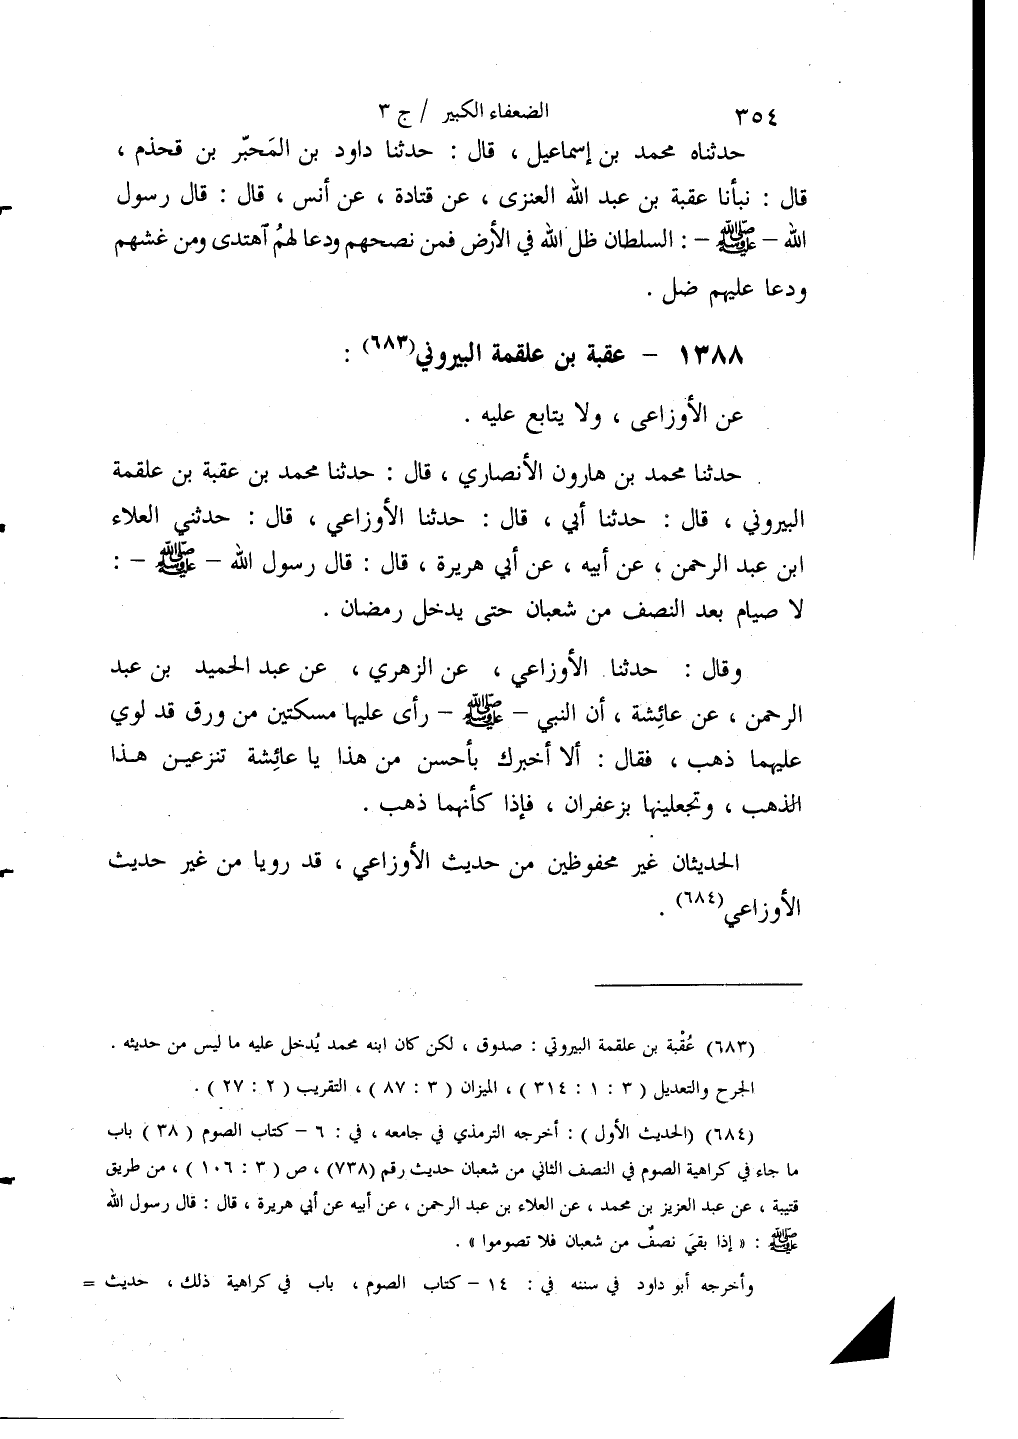 ٣٥٤ الضعفاء الكبير / ج ٣
حدثناه محمد بن إسماعيل ، قال : حدثنا داود بن المَحبّر بن قحذم ،
قال : نبأنا عقبة بن عبد الله العنزى ، عن قتادة ، عن أنس ، قال : قال رسول
الله – ﷺ – : السلطان ظل الله في الأرض فمن نصحهم ودعا لهمُ آهتدى ومن غشهم
ودعا عليهم ضل .
١٣٨٨ – عقبة بن علقمة البيروني(٦٨٣) :
عن الأوزاعى ، ولا يتابع عليه .
حدثنا محمد بن هارون الأنصاري ، قال : حدثنا محمد بن عقبة بن علقمة
البيروني ، قال : حدثنا أبي ، قال : حدثنا الأوزاعي ، قال : حدثني العلاء
ابن عبد الرحمن ، عن أبيه ، عن أبي هريرة ، قال : قال رسول الله – ﷺ – :
لا صيام بعد النصف من شعبان حتى يدخل رمضان .
وقال : حدثنا الأوزاعي ، عن الزهري ، عن عبد الحميد بن عبد
الرحمن ، عن عائِشة ، أن النبي – ﷺ – رأى عليها مسكتين من ورق قد لوي
عليهما ذهب ، فقال : ألا أخبرك بأحسن من هذا يا عائِشة تنزعين هذا
الذهب ، وتجعلينها بزعفران ، فإذا كأنهما ذهب .
الحديثان غير محفوظين من حديث الأوزاعي ، قد رويا من غير حديث
الأوزاعي(٦٨٤) .
(٦٨٣) عُقْبة بن علقمة البيروتي : صدوق ، لكن كان ابنه محمد يُدخل عليه ما ليس من حديثه .
الجرح والتعديل ( ٣ : ١ : ٣١٤ ) ، الميزان ( ٣ : ٨٧ ) ، التقريب ( ٢ : ٢٧ ) .
(٦٨٤) (الحديث الأول ) : أخرجه الترمذي في جامعه ، في : ٦ – كتاب الصوم ( ٣٨ ) باب
ما جاء في كراهية الصوم في النصف الثاني من شعبان حديث رقم (٧٣٨) ، ص ( ٣ : ١٠٦ ) ، من طريق
قتيبة ، عن عبد العزيز بن محمد ، عن العلاء بن عبد الرحمن ، عن أبيه عن أبي هريرة ، قال : قال رسول الله
ﷺ : « إذا بقيَ نصفٌ من شعبان فلا تصوموا » .
وأخرجه أبو داود في سننه في : ١٤ – كتاب الصوم ، باب في كراهية ذلك ، حديث =